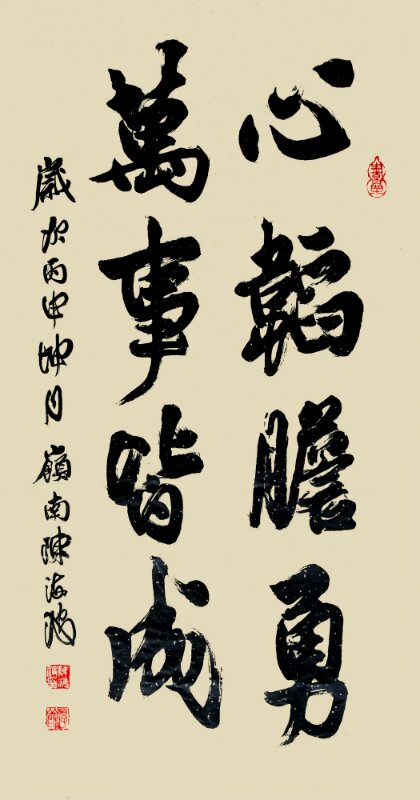 心韜膽勇
萬事皆成
歲次丙申坤月 嶺南陳海鴻